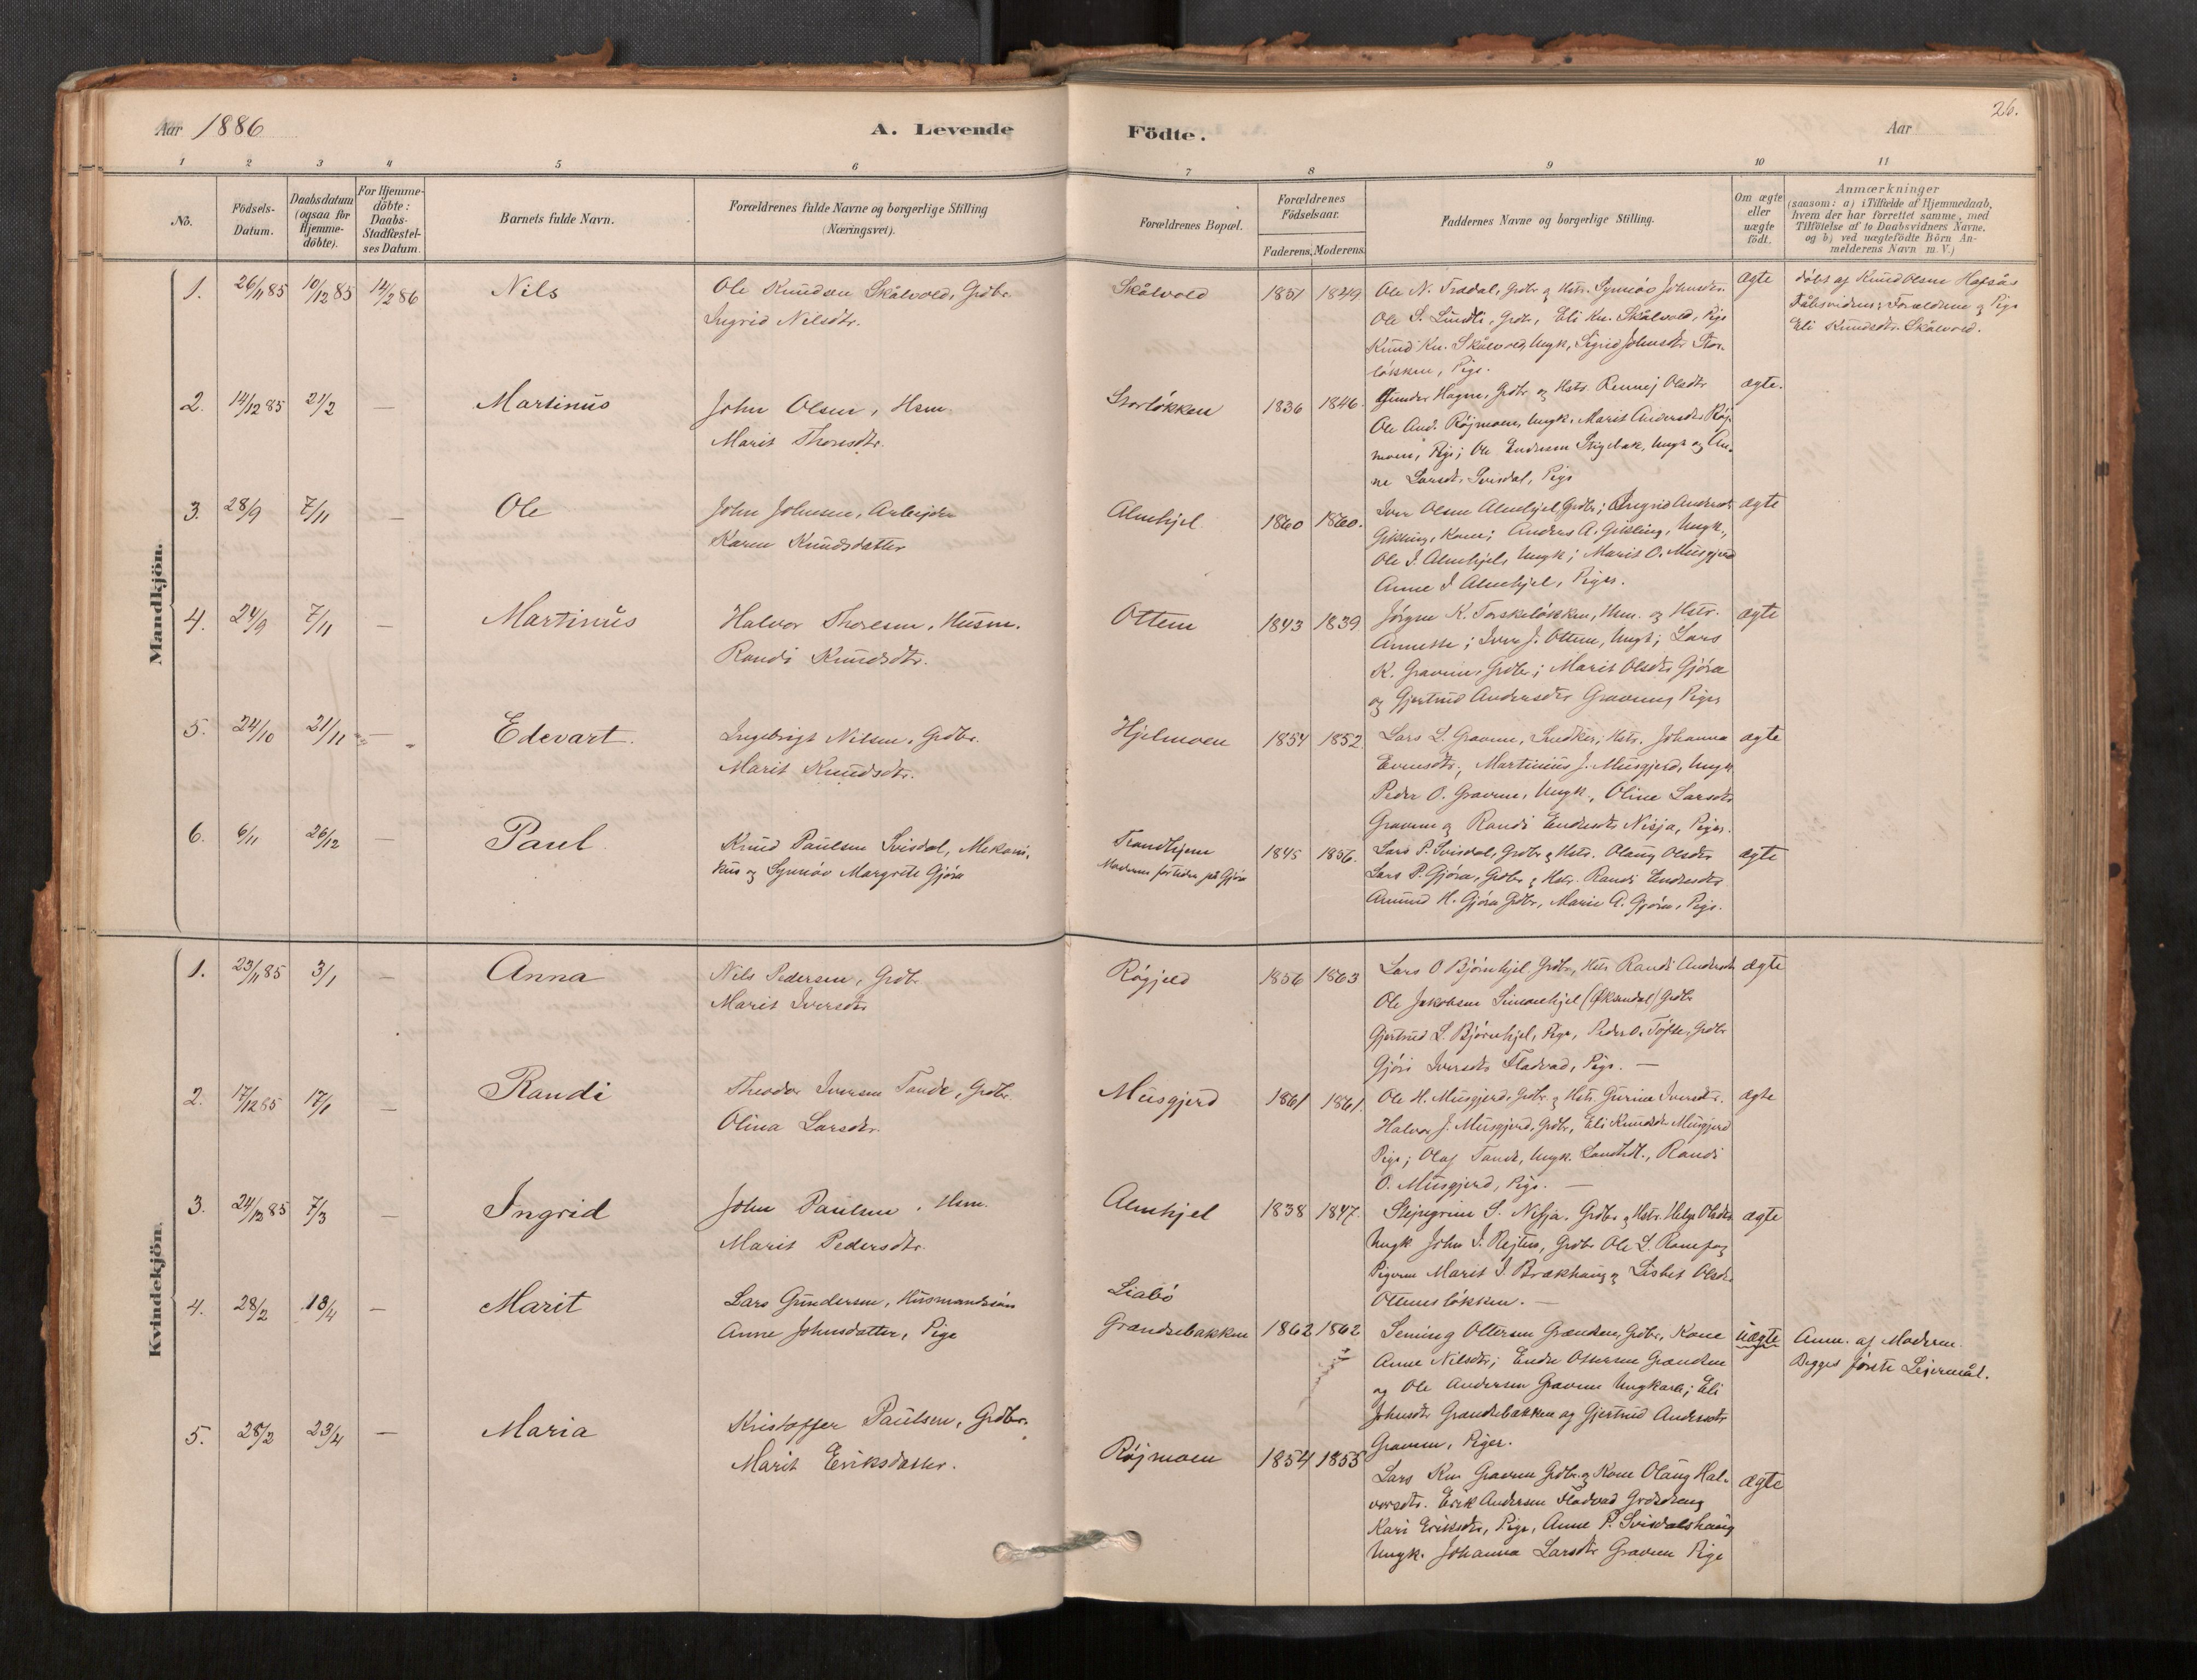 26.
Aar 1886
A. Levende
Födte.
Aar
1 2 3 4 5 6 7 8 9 10 11
No.
Födsels-
Datum.
Daabsdatum
(ogsaa for
Hjemme-
döbte).
For Hjemme-
döbte:
Daabs-
Stadfæstel-
ses Datum.
Barnets fulde Navn.
Forældrenes fulde Navne og borgerlige Stilling
(Næringsvei).
Forældrenes Bopæl.
Forældrenes
Födselsaar.
Faderens. Moderens.
Faddernes Navne og borgerlige Stilling.
Om ægte
eller
uægte
födt.
Anmærkninger
(saasom: a) i Tilfælde af Hjemmedaab,
hvem der har forrettet samme, med
Tilföielse af to Daabsvidners Navne,
og b) ved uægtefödte Börn An-
melderens Navn m. V.)
Mandkjön.
1. 26/11 85 10/12 85 14/2 86 Nils
Ole Knudsen Skålvold, Grdbr.
Ingrid Nilsdtr.
Skålvold 1851 1849
Ole N. Trædal, Grdbr. og Hstr. Synnöv Johnsdtr.
Ole S. Lundli, Grdbr., Eli Kn. Skålvold, Pige
Knud Kn. Skålvold, Ungk., Sigrid Johnsdtr Stor-
løkken, Pige.
ægte
døbt af Knud Olsen Hafsås
Dåbsvidner: Forældrene og Pige
Eli Knudsdtr. Skålvold.
2. 14/12 85 21/2 — Martinus
John Olsen, Hsm.
Marit Thoresdtr.
Storløkken 1836 1846.
Gunder Hagen, Grdbr. og Hstr. Rennej Olsdtr
Ole And. Røjmoen, Ungk., Marit Andersdtr Røj-
moen, Pige; Ole Endresen Stigebak, Ungk og An-
ne Larsdtr. Svisdal, Pige
ægte.
3. 28/9 7/11 — Ole
John Johnsen, Arbejder
Karen Knudsdatter
Almhjel 1860 1860.
Iver Olsen Almhjel, Grdbr; Ingrid Andersdtr
Gikling, Kone; Anders A. Gikling, Ungk.,
Ole I. Almhjel, Ungk; Marit O. Musgjerd
Anne I Almhjel, Piger.
ægte
4. 24/9 7/11 — Martinus
Halvor Thoresen, Husm.
Randi Knudsdtr.
Ottem 1843 1839
Jørgen K. Torskeløkken, Hsm. og Hstr.
Annette; Iver J. Ottem, Ungk; Lars
K. Gravem, Grdbr; Marit Olsdtr Gjöra
og Gjertrud Andersdtr Gravem, Piger
ægte
5. 24/10 21/11 — Edevart.
Ingebrigt Nilsen, Grdbr.
Marit Knudsdtr.
Hjelmoen 1854 1852.
Lars L. Gravem, Snedker, Hstr. Johanna
Evensdtr., Martinus J. Musgjerd, Ungk.
Peder O. Gravem, Ungk., Oline Larsdtr
Gravem og Randi Endresdtr Nisja, Piger.
ægte
6. 6/11 26/12 — Paul
Knud Paulsen Svisdal, Mekani-
kus og Synnöv Margrete Gjöra
Trondhjem
Moderen for tiden på Gjöra
1845 1856.
Lars P. Svisdal, Grdbr. og Hstr. Olaug Olsdtr
Lars P. Gjöra, Grdbr. og Hstr. Randi Endresdtr
Amund H. Gjöra Grdbr., Marie A. Gjöra, Pige.
ægte
Kvindekjön.
1. 23/11 85 3/1 — Anna
Nils Pedersen, Grdbr
Marit Iversdtr
Røgjeld 1856 1863
Lars O Bjørnhjel, Grdbr, Hstr Randi Andersdtr
Ole Jakobsen Simonhjel (Øksendal) Grdbr
Gjertrud L. Bjørnhjel, Pige, Peder O. Töfte, Grdbr
Gjöri Iversdtr Fladvad, Pige. —
ægte
2. 17/12 85 17/1 — Randi
Theodor Iversen Tande, Grdbr.
Olina Larsdtr.
Musgjerd 1861 1861.
Ole H. Musgjerd, Grdbr. og Hstr. Gurine Iversdtr.
Halvor J. Musgjerd, Grdbr, Eli Knudsdtr Musgjerd
Pige; Olaf Tande, Ungk. , Randi
O. Musgjerd, Pige. —
ægte
3. 24/12 85 7/3 — Ingrid
John Paulsen, Hsm.
Marit Pedersdtr.
Almhjel 1838 1847.
Stejngrim S. Nisja, Grdbr. og Hstr. Helga Olsdtr.
Ungk John I. Rejten, Grdbr Ole L. og
Pigerne Marit I. Brækhaug og Lisbet Olsdtr.
Ottemsløkken. —
ægte
4. 28/2 18/4 — Marit
Lars Gundersen, Husmandssön
Anne Johnsdatter, Pige
Liabö
Grændsebakken 1862 1862
Seming Ottersen Grændsen, Grdbr, Kone
Anne Nilsdtr; Endre Ottersen Grændsen
og Ole Andersen Gravem Ungkarle; Eli
Johnsdtr Grændsebakken og Gjertrud Andersdtr
Gravem, Piger.
uægte
Anm. af Moderen.
Begges förste Lejermål.
5. 28/2 23/4 — Maria
Kristoffer Paulsen, Grdbr.
Marit Eriksdatter.
Røjmoen 1854 1855
Lars Kn. Gravem Grdbr. og Kone Olaug Hal-
vorsdtr. Erik Andersen Fladvad Grdsdreng
Kari Eriksdtr, Pige, Anne P. Svisdalshaug
Ungk. Johanna Larsdtr Gravem Pige
ægte